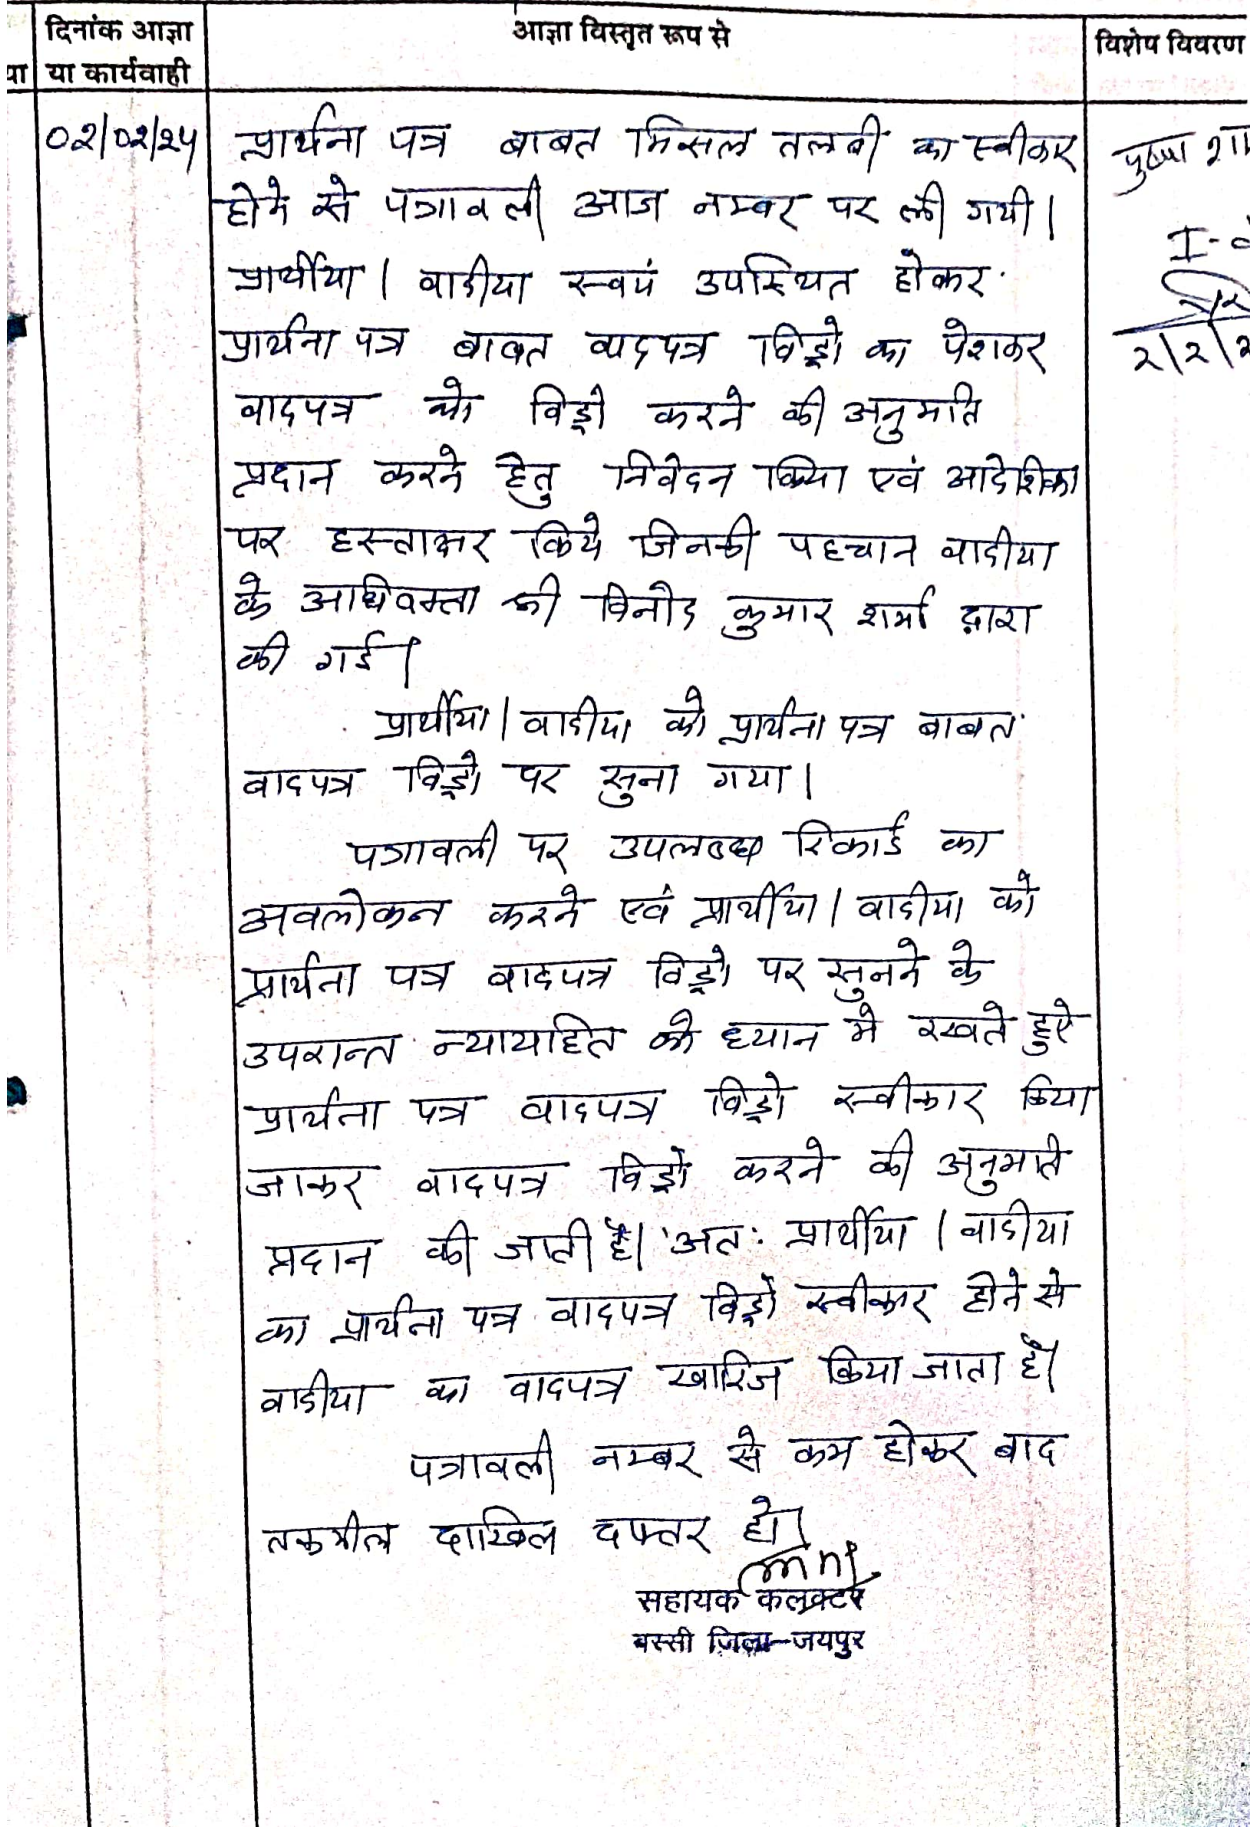 दिनांक आज्ञा
या कार्यवाही
आज्ञा विस्तृत रूप से
विशेष विवरण
या
02/02/24
प्रार्थना पत्र बाबत मिसल तलबी का स्वीकार
होने से पत्रावली आज नम्बर पर ली गयी।
प्रार्थीया / वादीया स्वयं उपस्थित होकर
प्रार्थना पत्र बाबत वादपत्र विड्रो का पेशकर
वादपत्र को विड्रो करने की अनुमति
प्रदान करने हेतु निवेदन किया एवं आदेशिका
पर हस्ताक्षर किये जिनकी पहचान वादीया
के अधिवक्ता श्री विनोद कुमार शर्मा द्वारा
की गई।
प्रार्थीया / वादीया को प्रार्थना पत्र बाबत
वादपत्र विड्रो पर सुना गया।
पत्रावली पर उपलब्ध रिकार्ड का
अवलोकन करने एवं प्रार्थीया / वादीया को
प्रार्थना पत्र वादपत्र विड्रो पर सुनने के
उपरान्त न्यायहित को ध्यान मे रखते हुऐ
प्रार्थना पत्र वादपत्र विड्रो स्वीकार किया
जाकर वादपत्र विड्रो करने की अनुमति
प्रदान की जाती है। अतः प्रार्थीया / वादीया
का प्रार्थना पत्र वादपत्र विड्रो स्वीकार होने से
वादीया का वादपत्र खारिज किया जाता है।
पत्रावली नम्बर से कम होकर बाद
तकमील दाखिल दफ्तर हो।
सहायक कलक्टर
बस्सी जिला-जयपुर
पुष्पा